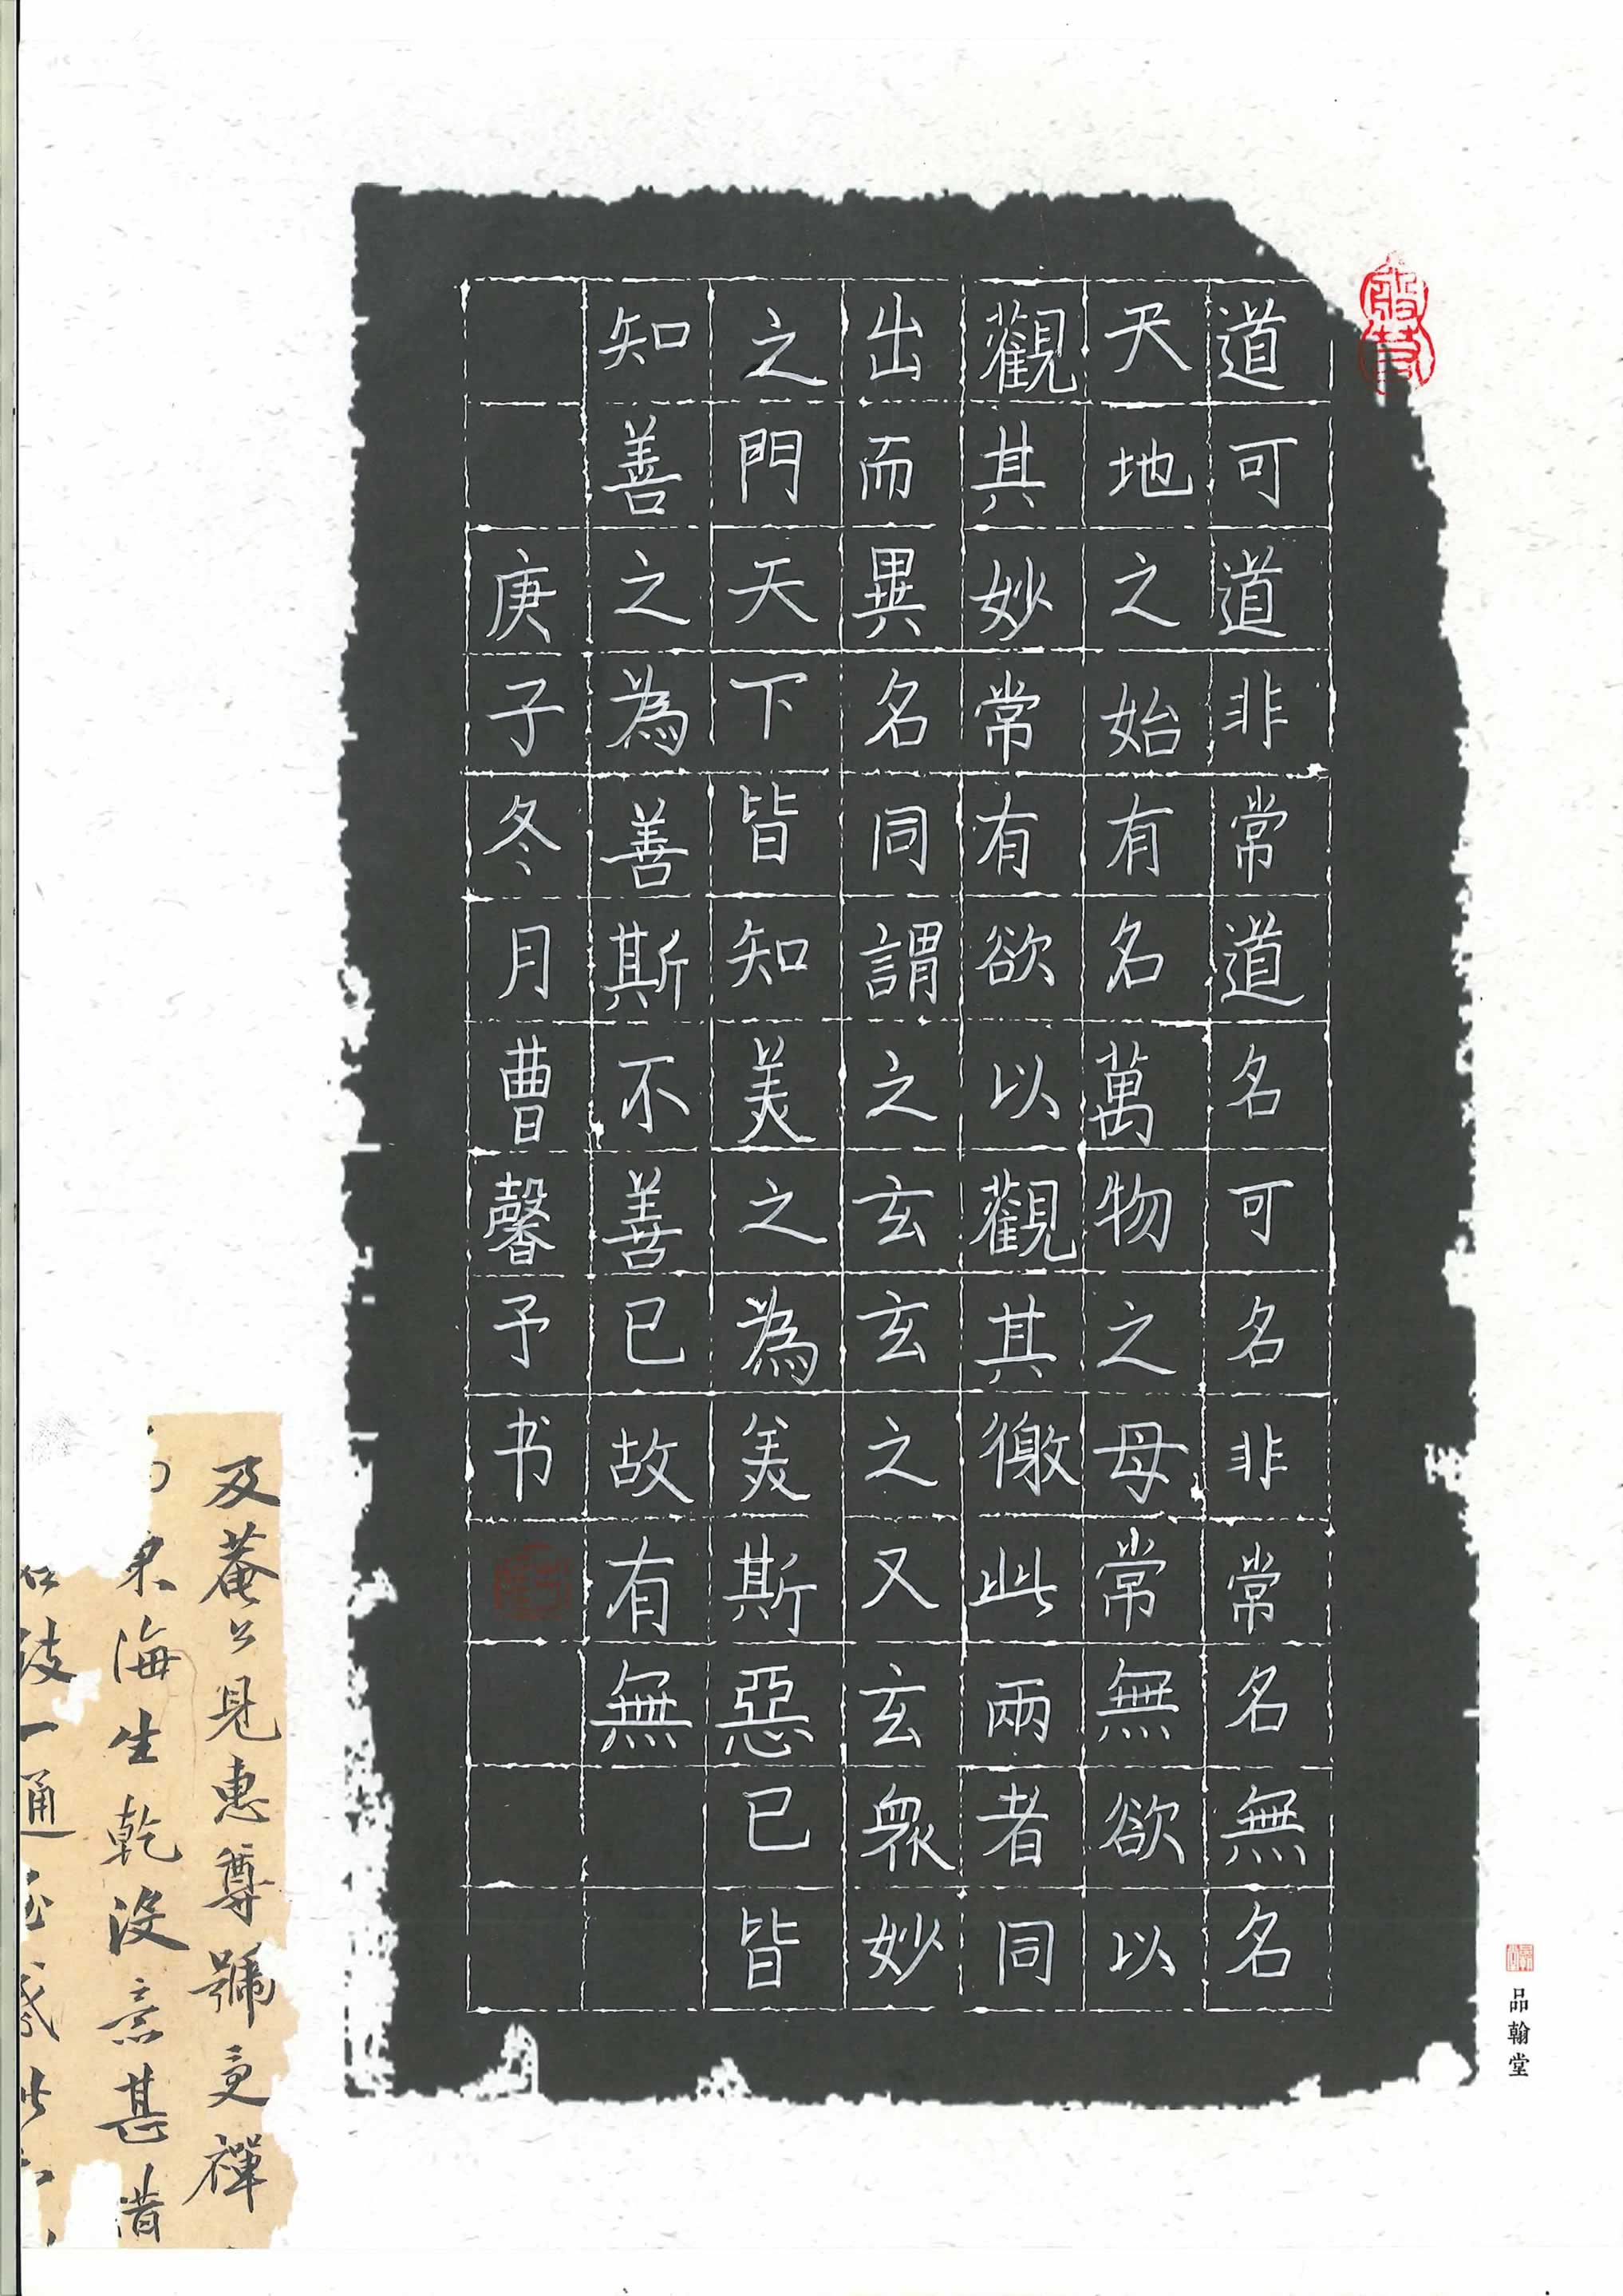 道可道非常道名可名非常名無名
天地之始有名萬物之母常無欲以
觀其妙常有欲以觀其徼此兩者同
出而異名同謂之玄玄之又玄衆妙
之門天下皆知美之為美斯惡已皆
知善之為善斯不善已故有無
庚子冬月曹馨予书
品翰堂
及菴公見惠尊號更禪
東海生乾没意甚惜